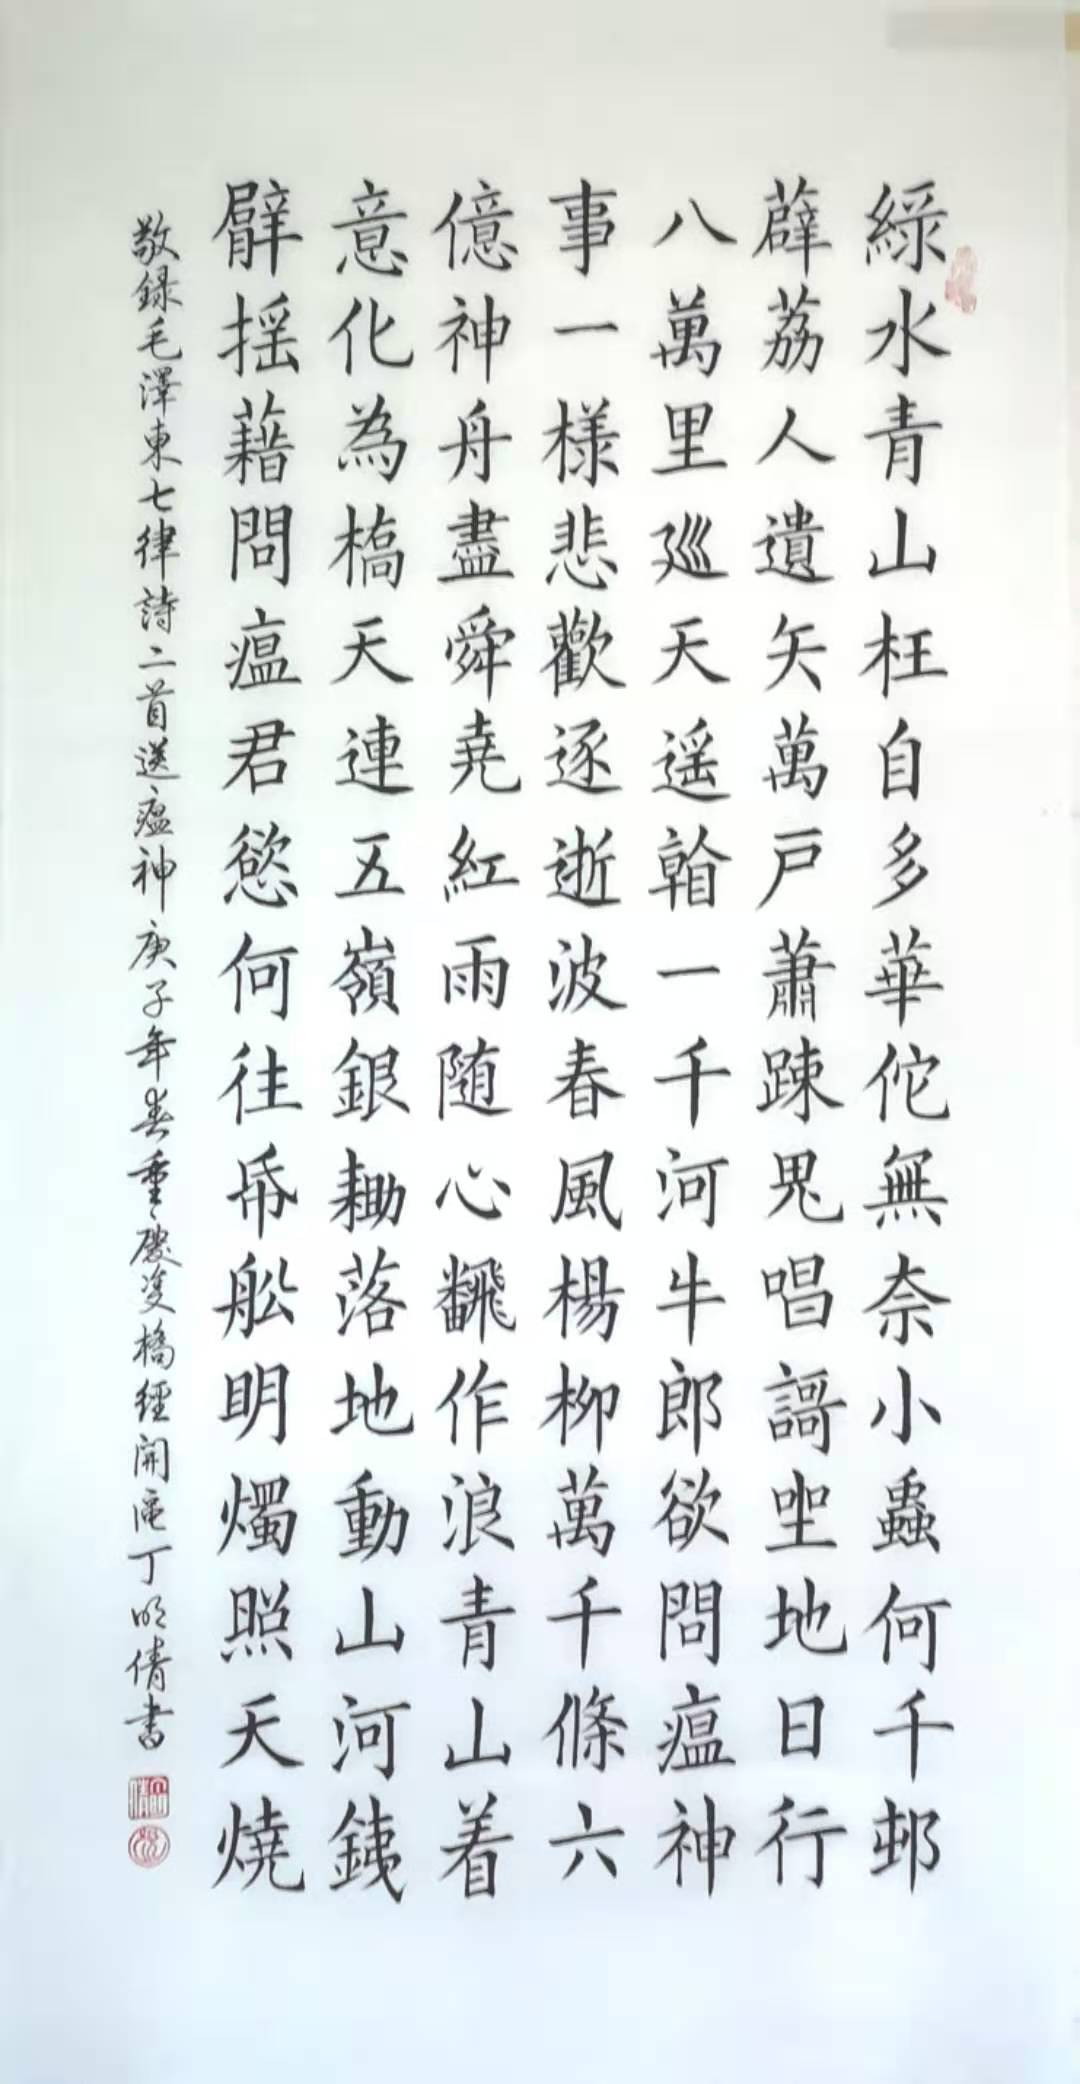 綠水青山枉自多華佗無奈小蟲何千邨
薜荔人遺矢萬戶蕭踈鬼唱謌坐地日行
八萬里巡天遥㸔一千河牛郎欲問瘟神
事一樣悲歡逐逝波春風楊柳萬千條六
億神舟盡舜堯紅雨随心飜作浪青山着
意化為橋天連五嶺銀耡落地動山河鐵
臂揺藉問瘟君慾何往帋舩明燭照天燒
敬録毛澤東七律詩二首送瘟神庚子年春重慶雙橋經開區丁明倩書